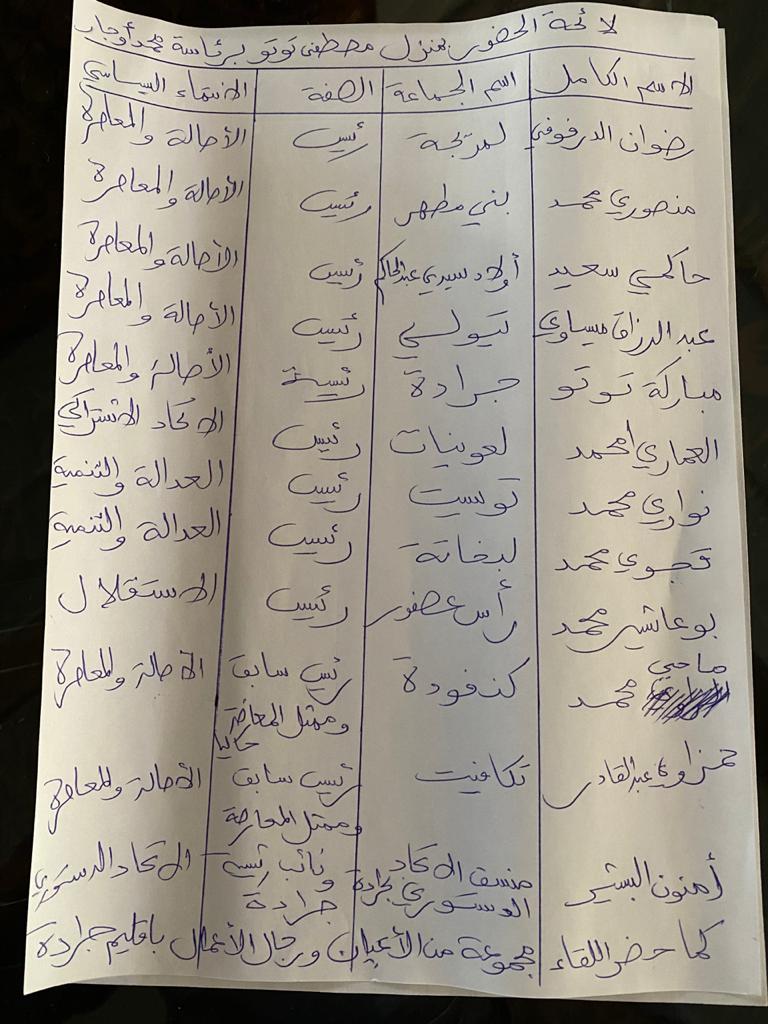 لائحة الحضور بمنزل مصطفى توتو برئاسة محمد أوجار
الاسم الكامل اسم الجماعة الصفة الانتماء السياسي
رضوان الدرفوفي لمريجة رئيس الأصالة والمعاصرة
منصوري محمد بني مطهر رئيس الأصالة والمعاصرة
حاكمي سعيد أولاد سيدي عبد الحاكم رئيس الأصالة والمعاصرة
عبد الرزاق ميساوي تيولي رئيس الأصالة والمعاصرة
مباركة توتو جرادة رئيسة الأصالة والمعاصرة
العماري امحمد لعوينات رئيس الاتحاد الاشتراكي
نواري محمد تويست رئيس العدالة والتنمية
قجوي محمد لبخاتة رئيس العدالة والتنمية
بوعاشير محمد رأس عصفور رئيس الاستقلال
ماحي محمد كنفودة رئيس سابق الأصالة والمعاصرة
وممثل المعارضة
حاليا
حمزاوي عبد القادر تكافيت رئيس سابق الأصالة والمعاصرة
وممثل المعارضة
أمنون البشير منسق الاتحاد ونائب رئيسة الاتحاد الدستوري
الدستوري بجرادة جرادة
كما حضر اللقاء مجموعة من الأعيان ورجال الأعمال باقليم جرادة